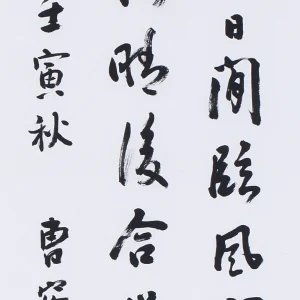 日閒臨风
晴後合
壬寅秋 曹